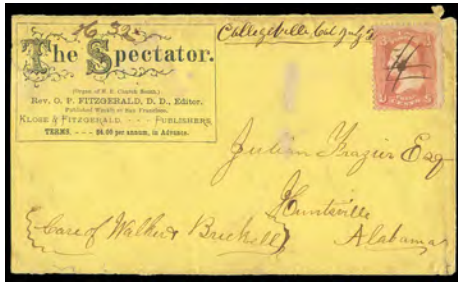 The Spectator.
(Organ of M. E. Church South.)
Rev. O. P. FITZGERALD, D. D., Editor.
Published Weekly at San Francisco.
KLOSE & FITZGERALD, - - - PUBLISHERS
TERMS. - - - $4.00 per annum, in Advance.
Collegeville Cal July 2
3 3
Julian Frazier Esq
Huntsville
Alabama
{Care of Walker Brickell}